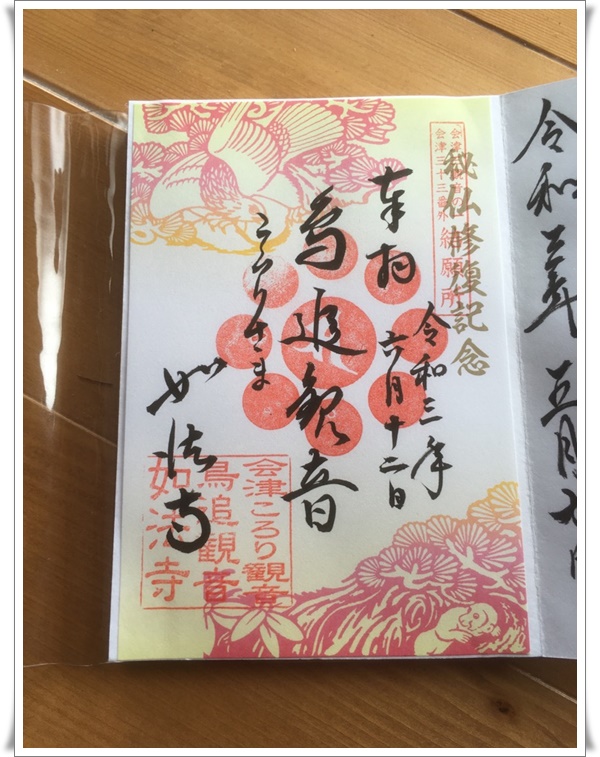 秘仏修復記念
会津三十三番外
結願所
奉拝
令和三年
六月十二日
鳥追観音
ころりさま
如法寺
会津ころり観音
鳥追観音
如法寺